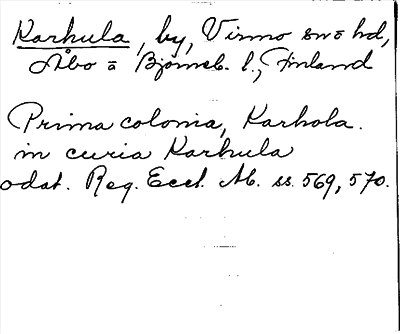 Karhula, by, Virmo sn o hd,
Åbo o Björneb. l., Finland
Prima colonia, Karhola.
in curia Karhula
odat. Reg. Eccl. Ab. ss. 569, 570.